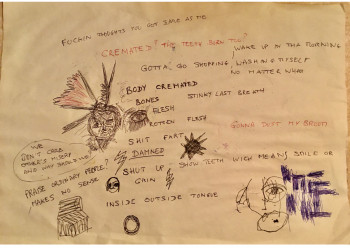 FUCKIN THOUGHTS YOU GOT SAME AS ME
CREMATED? THE TEETH BURN TOO?
WAKE UP IN THA MORNING
GOTTA GO SHOPPING, WASHING MYSELF
NO MATTER WHAT
BODY CREMATED
BONES STINKY LAST BREATH
FLESH
ROTTEN FLESH
GONNA ROTT MY BREATH
SHIT FART
DAMNED
SHOW TEETH WHICH MEANS SMILE OR
WE
DON'T CARE
OTHER'S MISERY
AND WHY SHOULD WE
SHUT UP
GAIN
PRAISE ORDINARY PEOPLE?
MAKES NO SENSE
INSIDE OUTSIDE TONGUE
ME